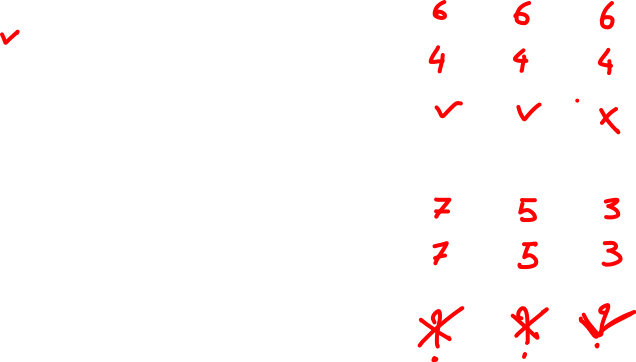 6 6 6
✓
4 4 4
✓ ✓ x
7 5 3
7 5 3
? ? ?